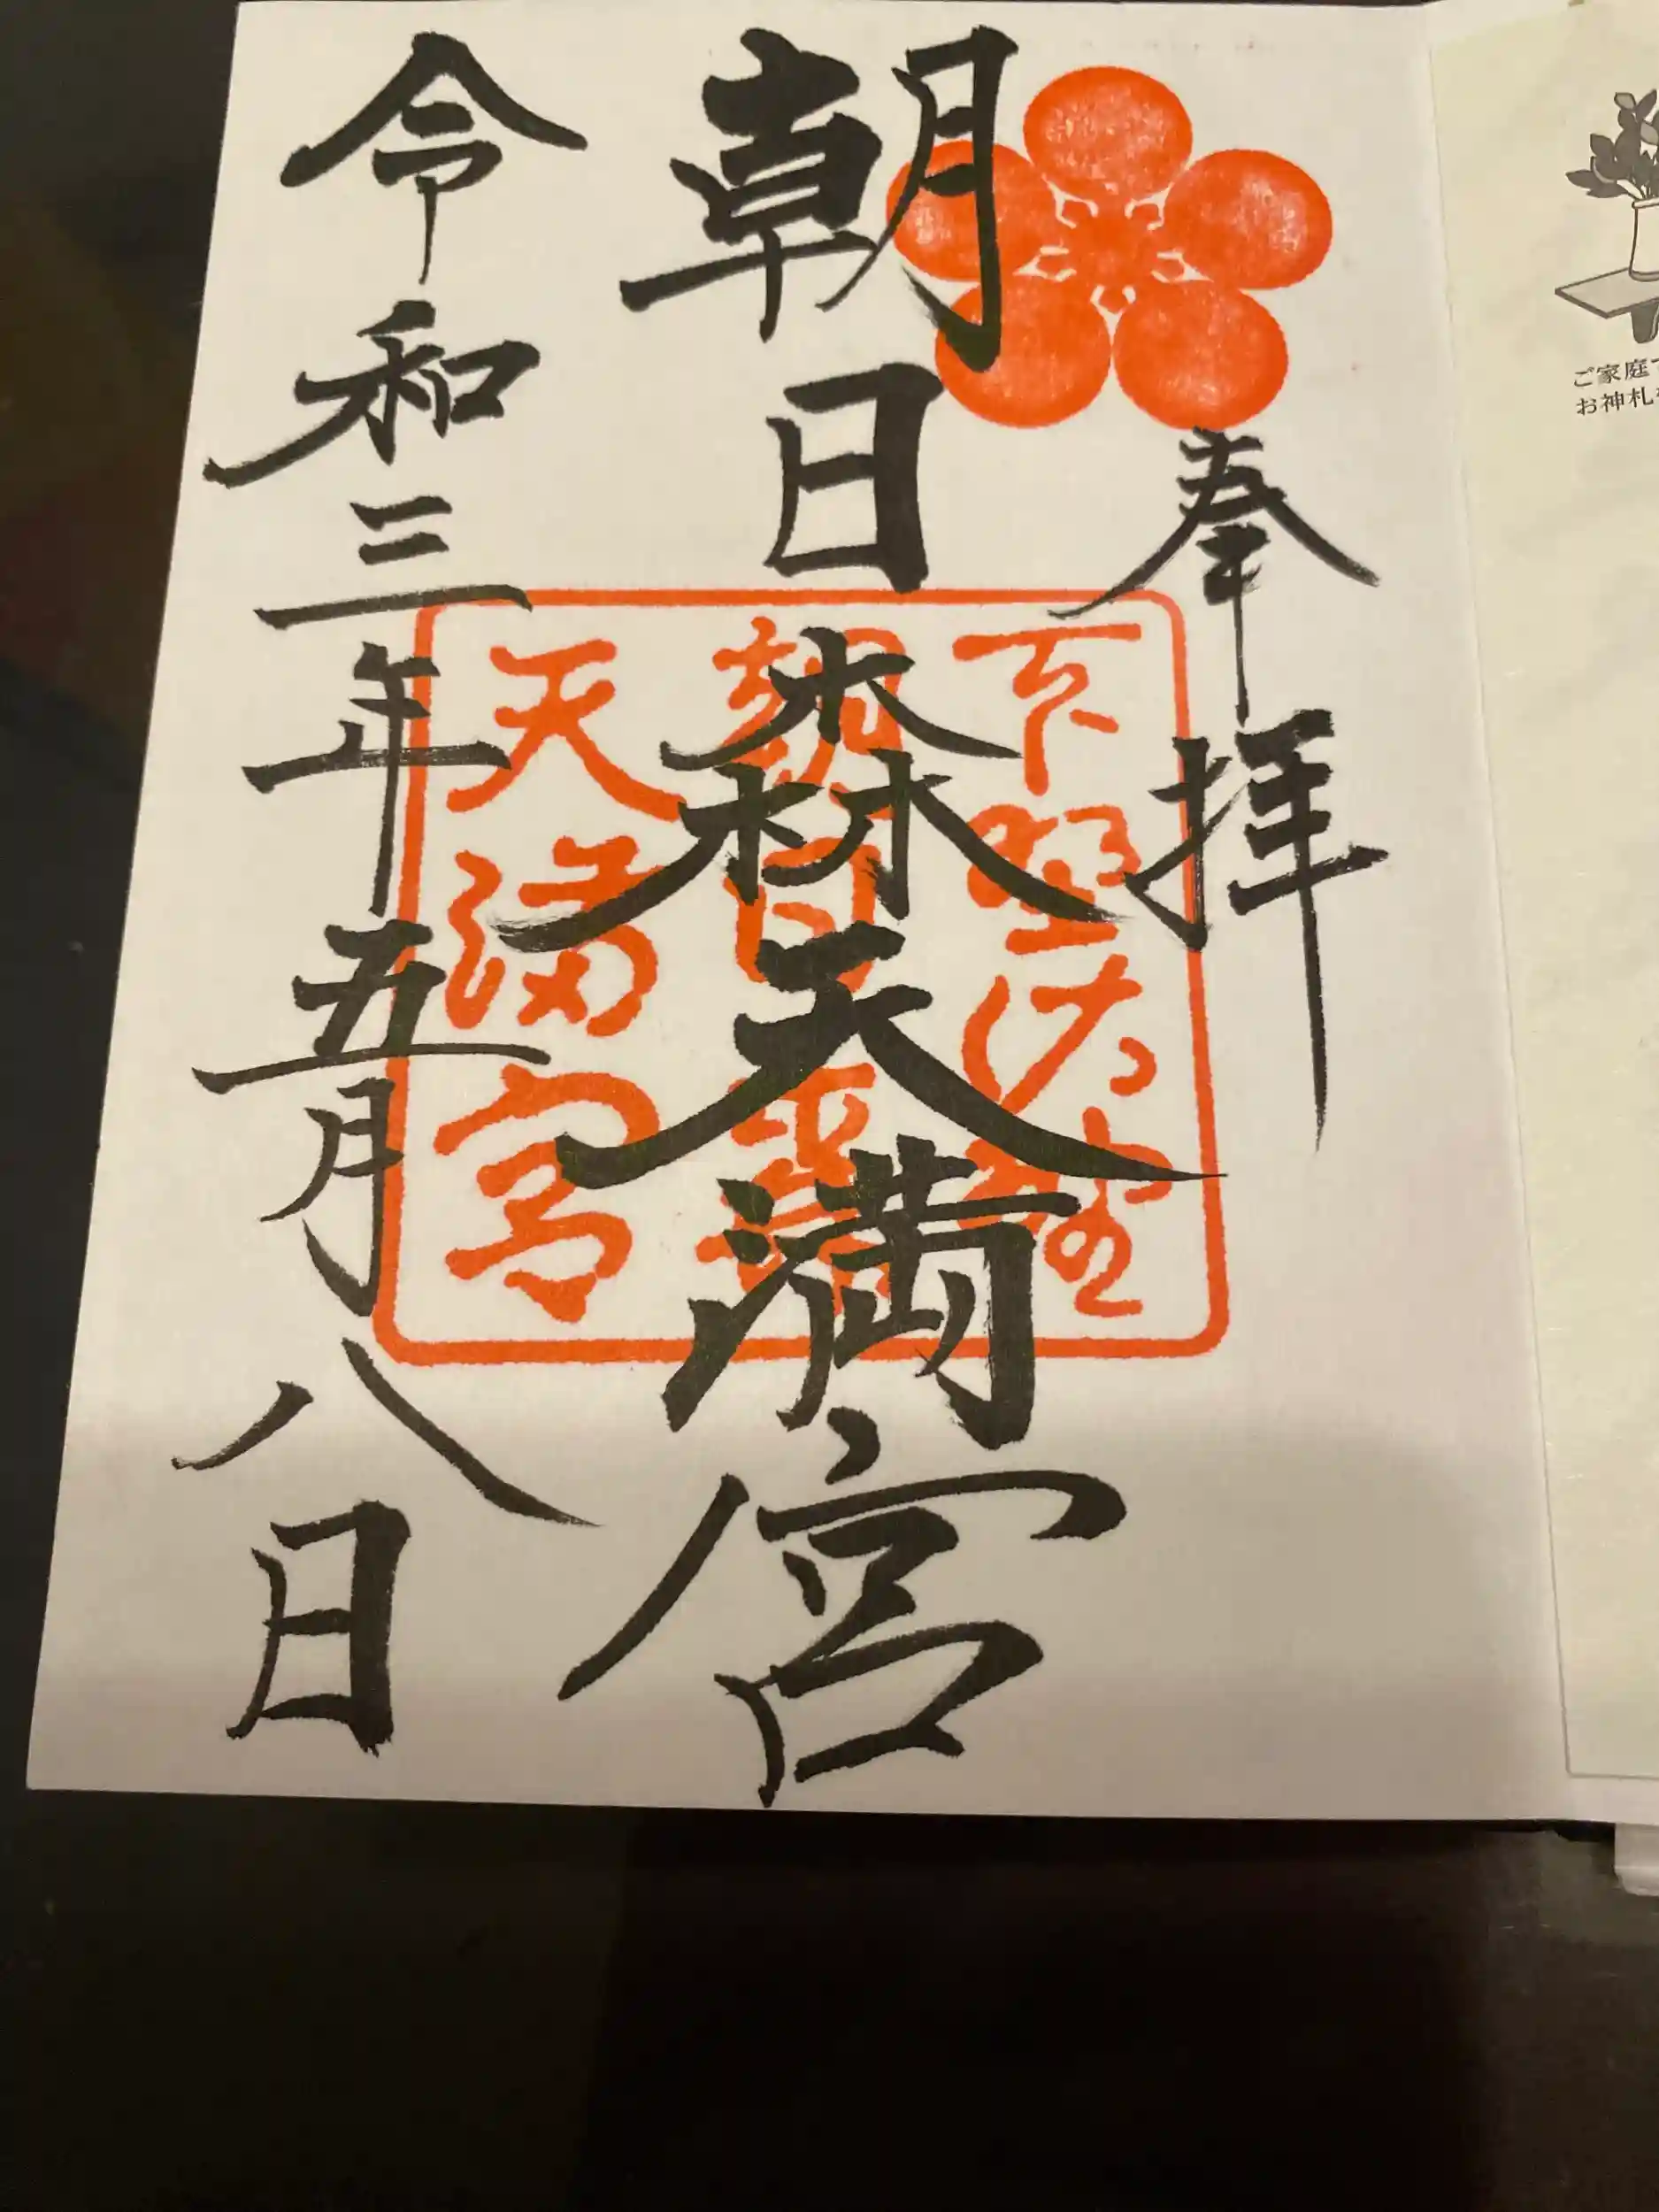 奉拝
朝日森天満宮
令和三年五月八日
下野佐野
朝日森
天満宮
ご家庭
お神札